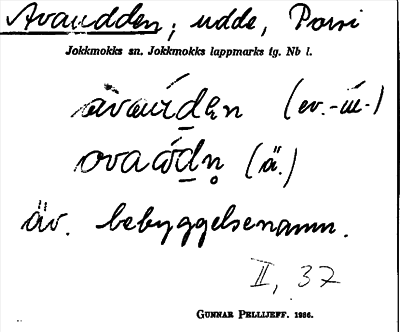 Avaudden; udde, Porsi
Jokkmokks sn. Jokkmokks lappmarks tg. Nb l.
(ev. -ú̄-)
(ä.)
äv. bebyggelsenamn.
II, 37
GUNNAR PELLIJEFF. 1986.